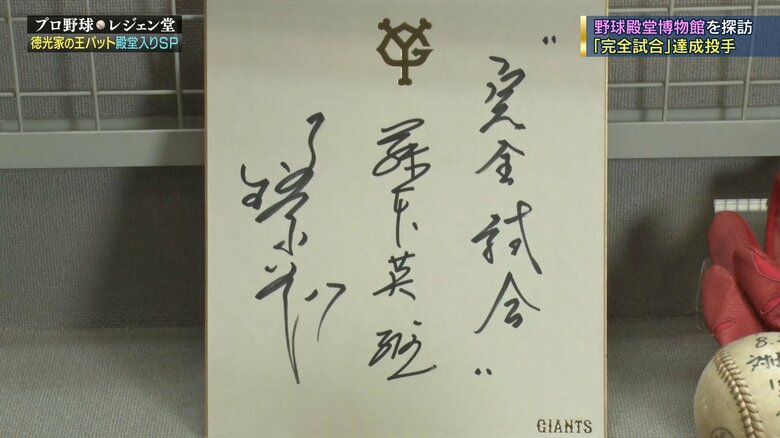 プロ野球レジェン堂
徳光家の王バット殿堂入りSP
野球殿堂博物館を探訪
「完全試合」達成投手
YG
"完全試合"
藤本英雄
GIANTS
8.
対